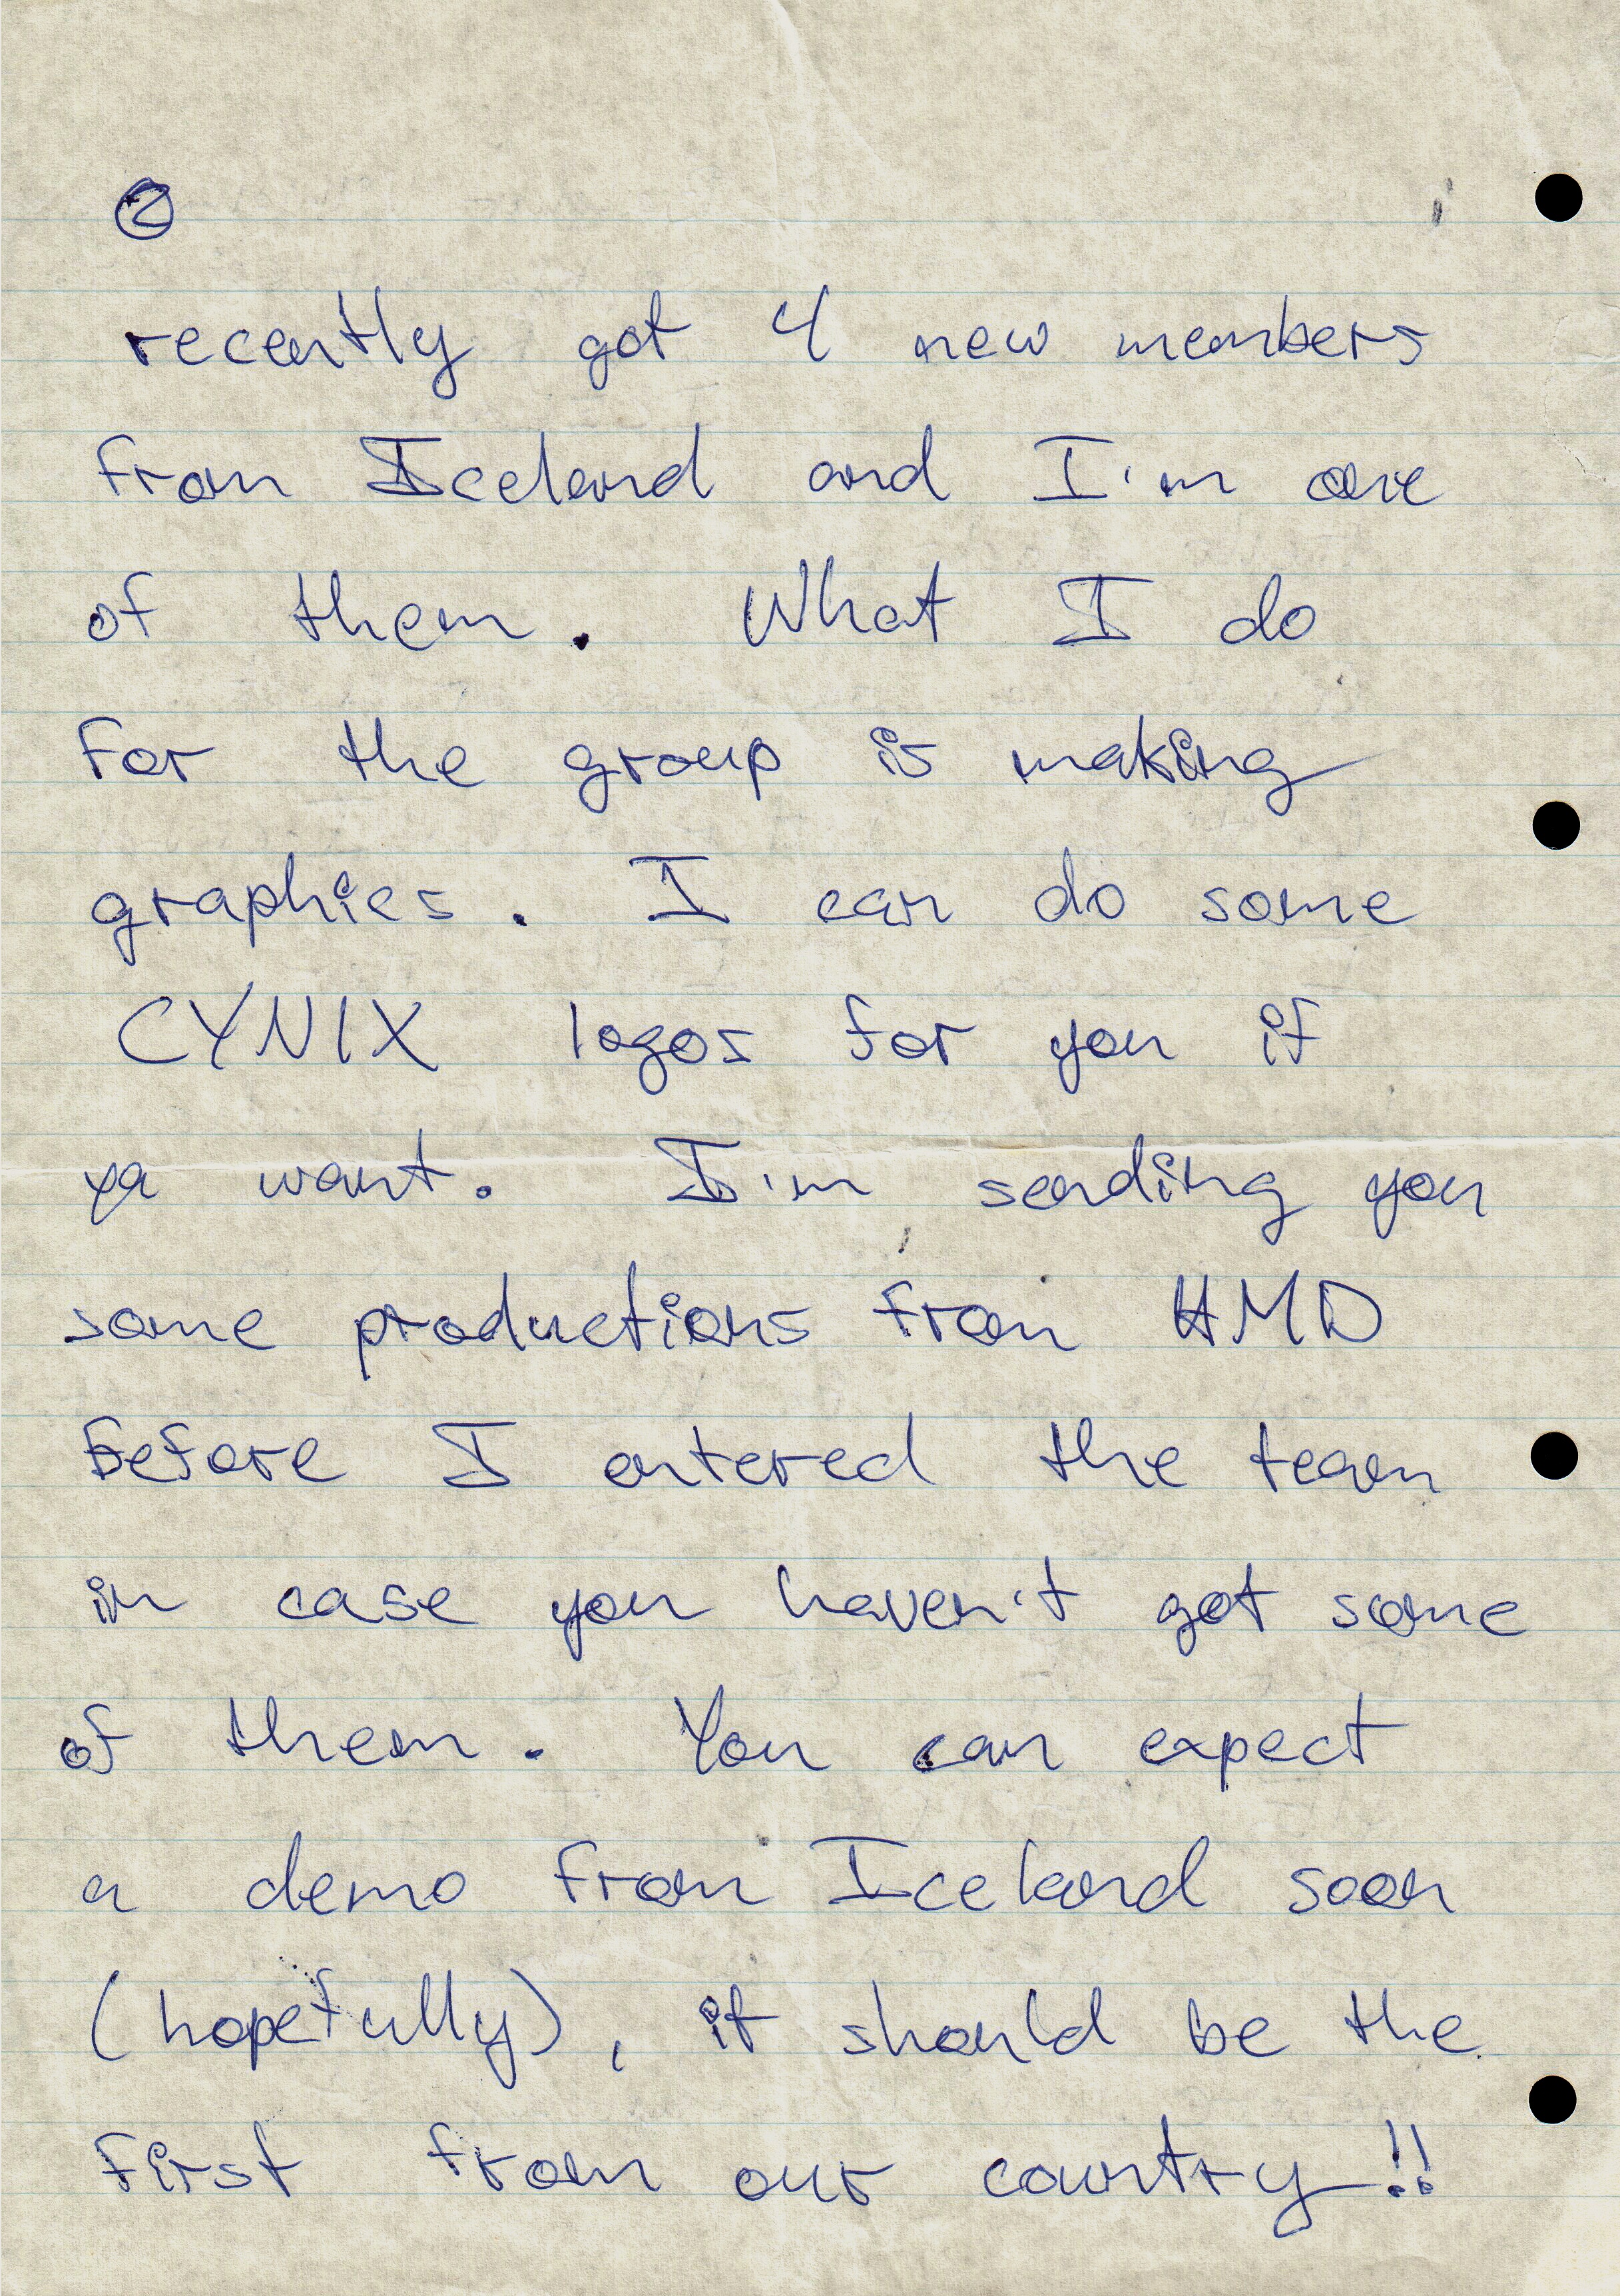 2
recently got 4 new members
from Iceland and I'm one
of them. What I do
for the group is making
graphics. I can do some
CYNIX logos for you if
ya want. I'm sending you
some productions from HMD
before I entered the team
in case you haven't got some
of them. You can expect
a demo from Iceland soon
(hopefully), it should be the
first from our country!!